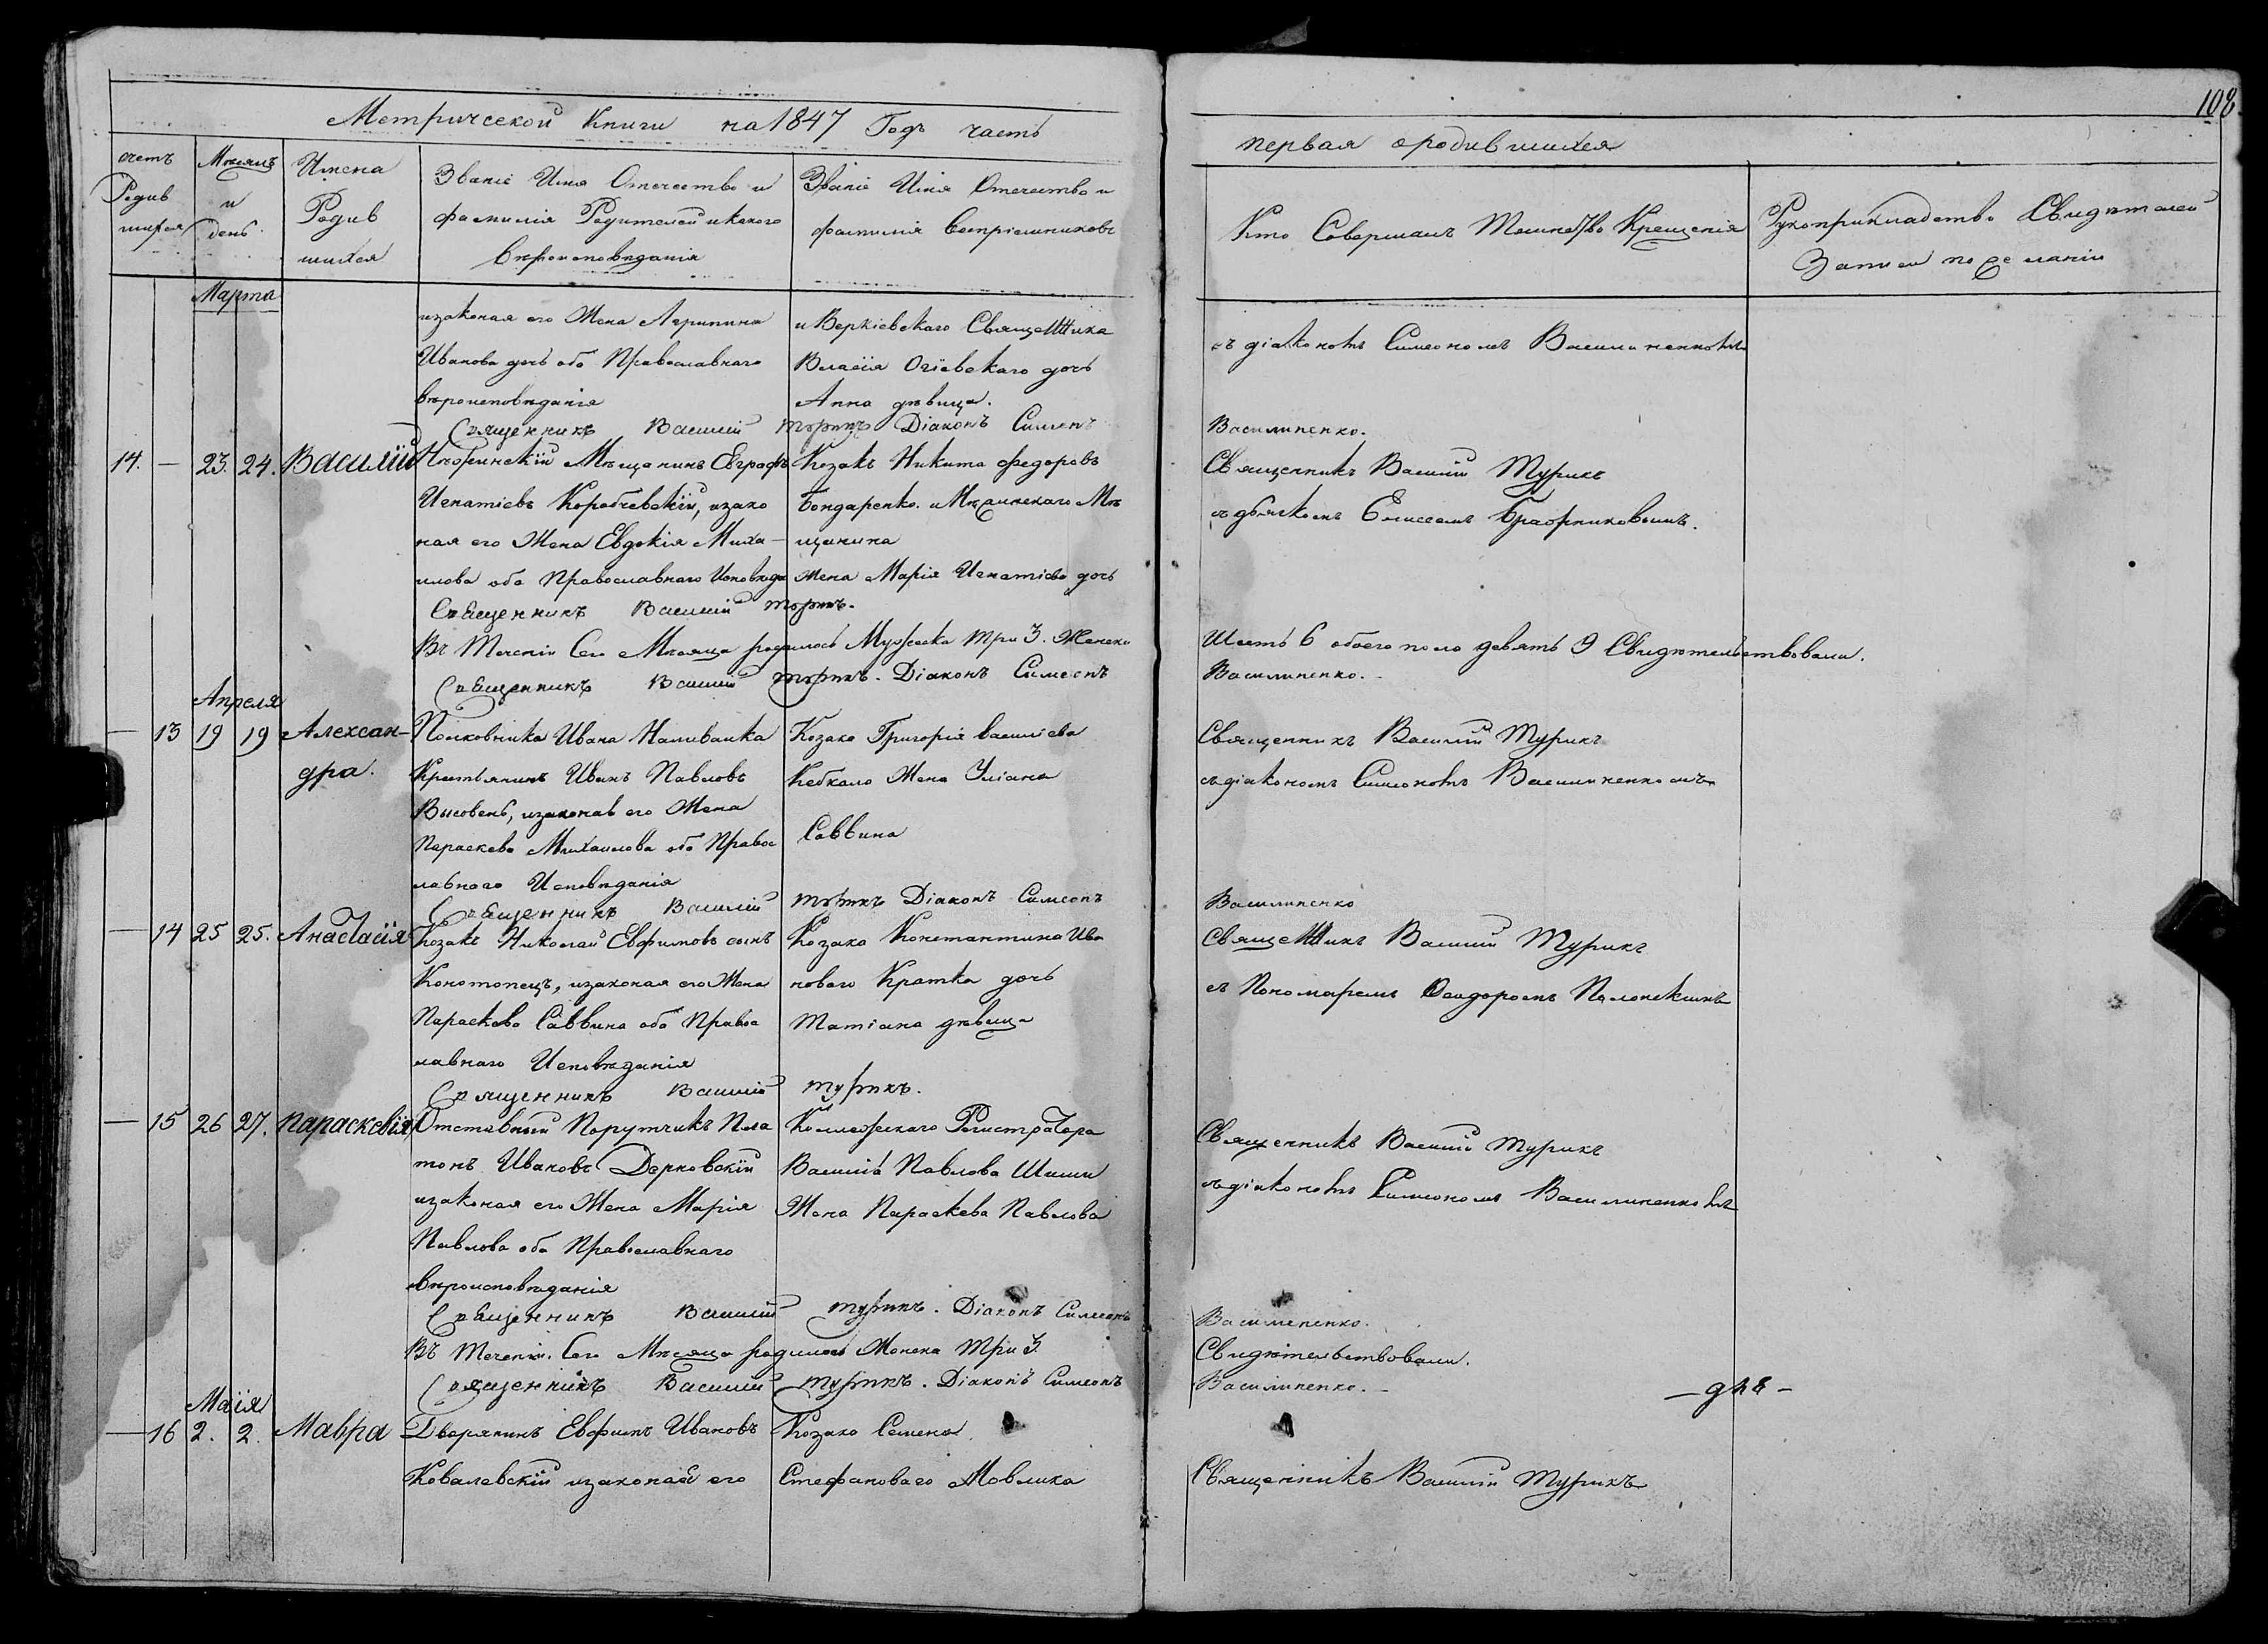 108
Метрической Книги на 1847 Годъ часть
первая о родившихся
счетъ Родив шихся
Мѣсяцъ и день
Имена Родив шихся
Званіе Имя Отечество и фамилія Родителей и какого Вѣроисповѣданія
Званіе Имя Отечество и фамилія Воспріемниковъ
Кто Совершалъ Таинство Крещенія
Рукоприкладство Свидѣтелей Записи по желанію
Марта
изаконая его Жена Агрипина
Иванова дочь оба Православнаго
вѣроисповѣданія
и Веркіевскаго Священника
Власія Огіевскаго дочь
Анна дѣвица.
съ діакономъ Симеономъ Василиненкомъ
Священникъ Василій Турикъ Діаконъ Симеонъ Василиненко.
14. — 23. 24. Василій
Нѣжинскій Мѣщанинъ Евграфъ
Игнатіевъ Коробчевскій, изако
ная его Жена Евдокія Миха
илова оба Православнаго Исповѣда
Козакъ Никита Федоровъ
Бондаренко. и Нѣжинскаго Мѣ
щанина
жена Марія Игнатіева дочь
Священникъ Василій Турикъ
съ дьячкомъ Елисеемъ
Священникъ Василій Турикъ.
Въ Теченіи Сего Мѣсяца родилось Мужеска три 3. Женска Шесть 6 обоего пола девять 9 Свидѣтельствовали.
Священникъ Василій Турикъ. Діаконъ Симеонъ Василиненко.
Апреля
— 13 19 19 Алексан-
дра.
Полковника Ивана Наливайка
Крестьянинъ Иванъ Павловъ
Высовень, изаконая его Жена
Параскева Михаилова оба Правос
лавного Исповѣданія
Козака Григорія Василіева
Кебкало Жена Уліана
Саввина
Священникъ Василій Турикъ
съ діакономъ Симеономъ Василиненкомъ
Священникъ Василій Турикъ Діаконъ Симеонъ Василиненко
— 14 25 25. Анастасія
Козакъ Николай Евфимовъ сынъ
Конотопецъ, изаконая его Жена
Параскева Саввина оба Правос
лавнаго Исповѣданія
Козака Константина Ива
новаго Кратка дочь
Татіана дѣвица
Священникъ Василій Турикъ
съ Пономаремъ Феодоромъ Полонскимъ
Священникъ Василій Турикъ.
— 15 26 27. Параскевія
Отставный Порутчикъ Пла
тонъ Ивановъ Дерковскій
изаконая его Жена Марія
Павлова оба Православнаго
вѣроисповѣданія
Коллежскаго Регистратора
Василія Павлова Шиши
Жена Параскева Павлова
Священникъ Василій Турикъ
съ діакономъ Симеономъ Василиненкомъ
Священникъ Василій Турикъ. Діаконъ Симеонъ Василиненко.
Въ Теченіи Сего Мѣсяца родилось Женска Три 3 Свидѣтельствовали.
Священникъ Василій Турикъ. Діаконъ Симеонъ Василиненко.
Маія
— 16 2. 2. Мавра
Дворянинъ Евфимъ Ивановъ
Ковалевскій изаконая его
Козака Семена
Стефановаго Мовлика
Священникъ Василій Турикъ